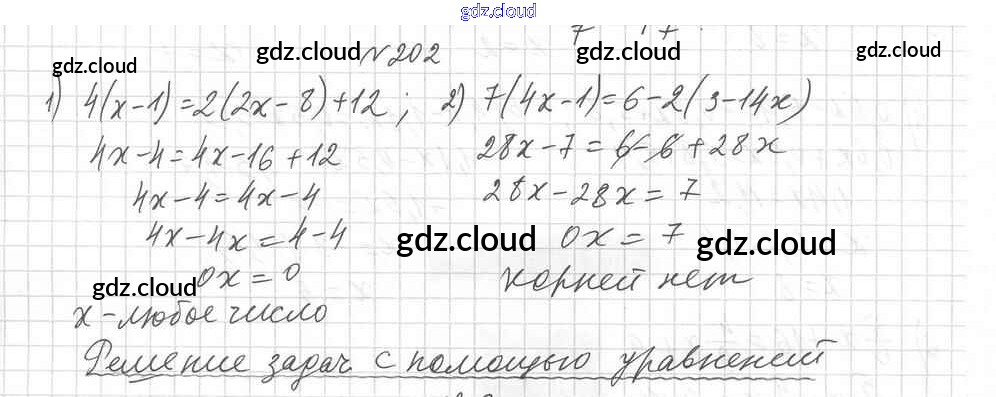 gdz.cloud
gdz.cloud gdz.cloud № 202 gdz.cloud gdz.cloud
1) 4(x-1)=2(2x-8)+12; 2) 7(4x-1)=6-2(3-14x)
4x-4=4x-16+12 28x-7=6-6+28x
4x-4=4x-4 28x-28x=7
4x-4x=4-4 gdz.cloud 0x=7 gdz.cloud
gdz.cloud 0x=0 корней нет
x-любое число
Решение задач с помощью уравнений